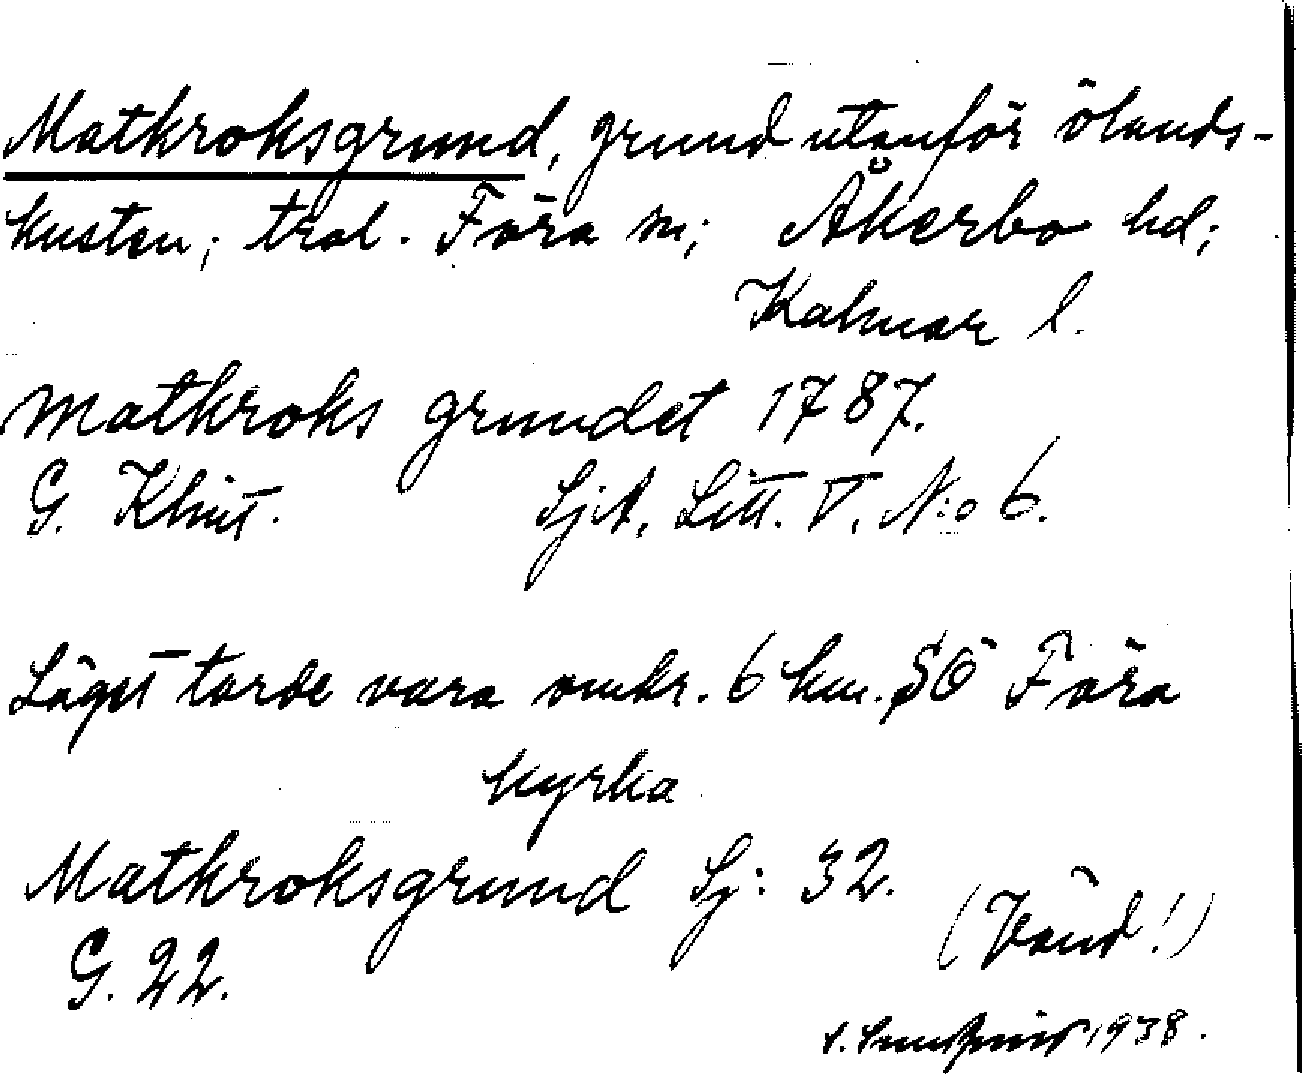 Matkroksgrund, grund utanför ölands-
kusten; trol. Föra sn; Åkerbo hd;
Kalmar l.
Matkroks grundet 1787.
G. Klint. SjA, Litt. V. N:o 6.
Läget torde vara omkr. 6 km. SÖ Föra
kyrka
Matkroksgrund Sj: 32.
(Vänd!)
G. 22.
1938.